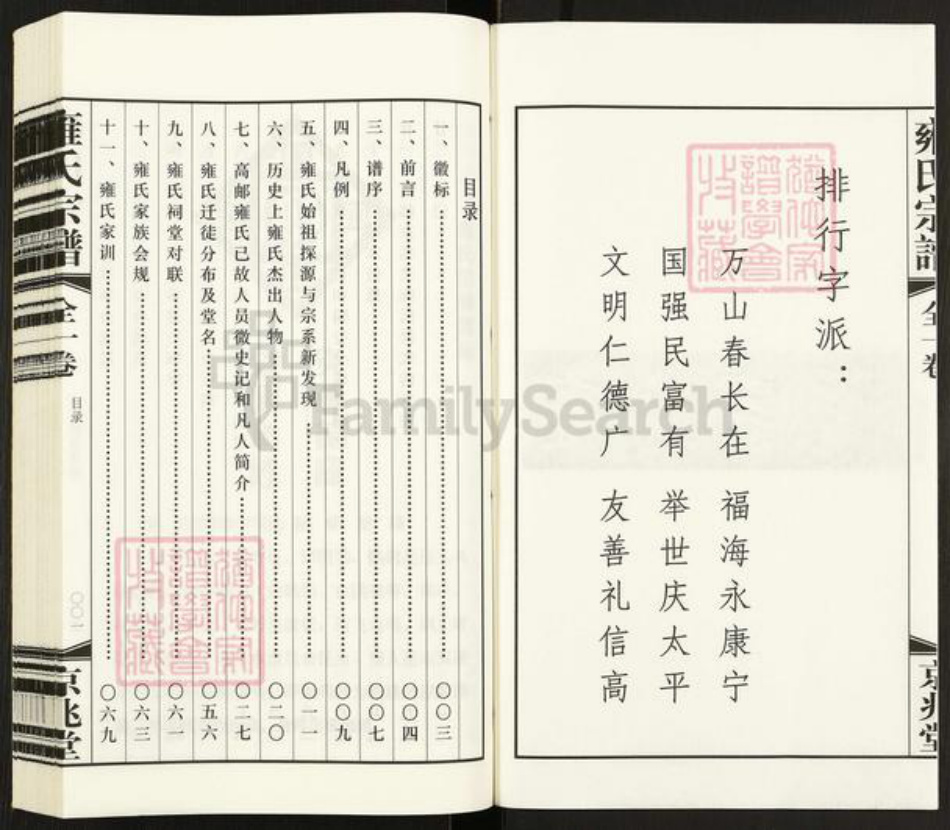 雍氏宗譜
全一卷
京兆堂
排行字派：
万山春长在 福海永康宁
国强民富有 举世庆太平
文明仁德广 友善礼信高
目录
一、徽标 〇〇三
二、前言 〇〇四
三、谱序 〇〇七
四、凡例 〇〇九
五、雍氏始祖探源与宗系新发现 〇一一
六、历史上雍氏杰出人物 〇二〇
七、高邮雍氏已故人员微史记和凡人简介 〇二七
八、雍氏迁徒分布及堂名 〇五六
九、雍氏祠堂对联 〇六一
十、雍氏家族会规 〇六三
十一、雍氏家训 〇六九
雍氏宗譜
全一卷
目录
〇〇一
京兆堂
FamilySearch